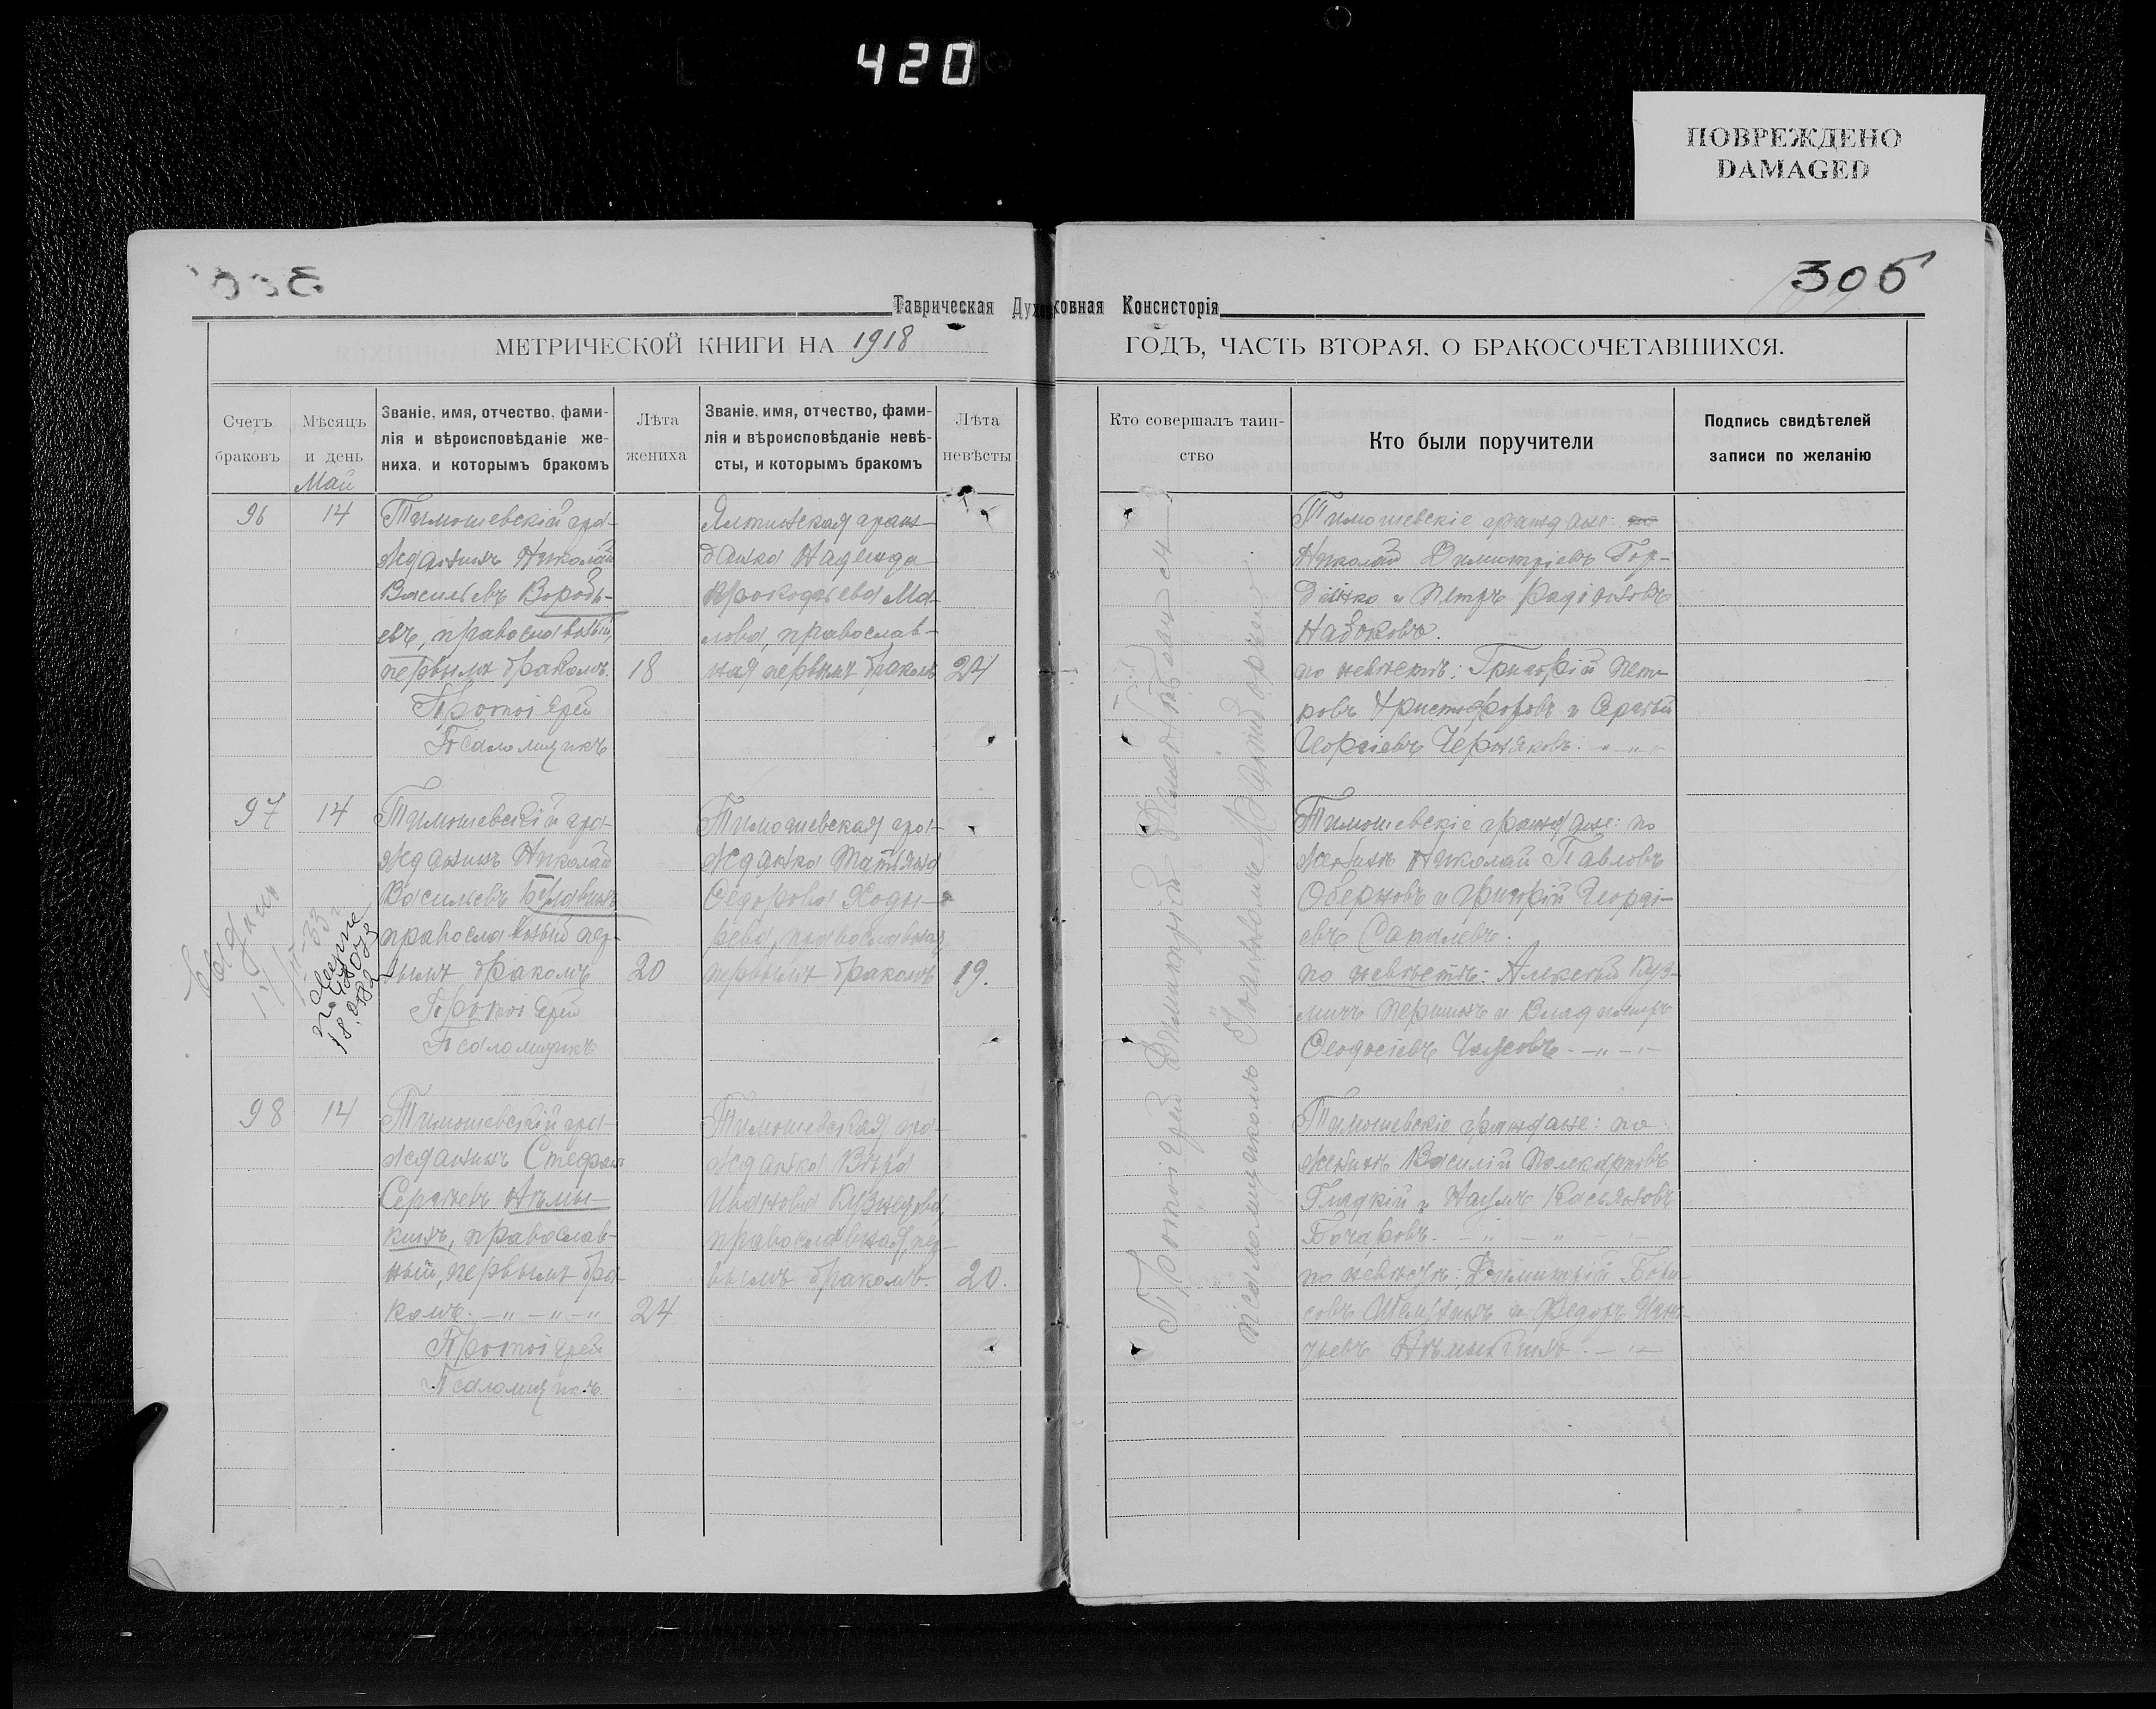 420
ПОВРЕЖДЕНО
DAMAGED
305
Таврическая Духовная Консисторія
МЕТРИЧЕСКОЙ КНИГИ НА 1918 ГОДЪ, ЧАСТЬ ВТОРАЯ, О БРАКОСОЧЕТАВШИХСЯ.
Счетъ браковъ
Мѣсяцъ и день
Званіе, имя, отчество, фами-
лія и вѣроисповѣданіе же-
ниха, и которымъ бракомъ
Лѣта жениха
Званіе, имя, отчество, фами-
лія и вѣроисповѣданіе невѣ-
сты, и которымъ бракомъ
Лѣта невѣсты
Кто совершалъ таин-
ство
Кто были поручители
Подпись свидѣтелей
записи по желанію
Май
96
14
Тимошевскій гра-
жданинъ Николай
Васильевъ Воробь-
евъ, православный,
первымъ бракомъ.
18
Протоіерей
Псаломщикъ
Ялтинская граж-
данка Надежда
Прокофьева Ма-
лова, православ-
ная первымъ бракомъ
24
Тимошевскіе граждане:
Николай Димитріевъ Гор-
дінко и Петръ Радіоновъ
Набоковъ.
по невѣстѣ: Григорій Пет-
ровъ Христофоровъ и Сергѣй
Георгіевъ Черняковъ.
97
14
Тимошевскій гра-
жданинъ Николай
Васильевъ
православный пер-
вымъ бракомъ
20
Протоіерей
Псаломщикъ
Тимошевская гра-
жданка Татьяна
Ѳедорова Ходы-
рева, православная,
первымъ бракомъ
19.
Тимошевскіе граждане: по
женихѣ Николай Павловъ
и Григорій Георгі-
евъ
по невѣстѣ: Алексѣй Куз-
мичъ Першинъ и Владимиръ
Ѳеодосіевъ
98
14
Тимошевскій гра-
жданинъ Стефанъ
Сергѣевъ Алымы-
кинъ, православ-
ный, первымъ бра-
комъ. -"-"-"
24
Протоіерей
Псаломщикъ.
Тимошевская гра-
жданка Вѣра
Иванова Кузнецова,
православная, пер-
вымъ бракомъ.
20.
Тимошевскіе граждане: по
женихѣ Василій Поликарповъ
Гладкій и Наумъ Касьяновъ
Бочаровъ.
по невѣстѣ: Димитрій Бори-
совъ и Федоръ
Протоіерей Димитрій
псаломщикомъ Іоанномъ